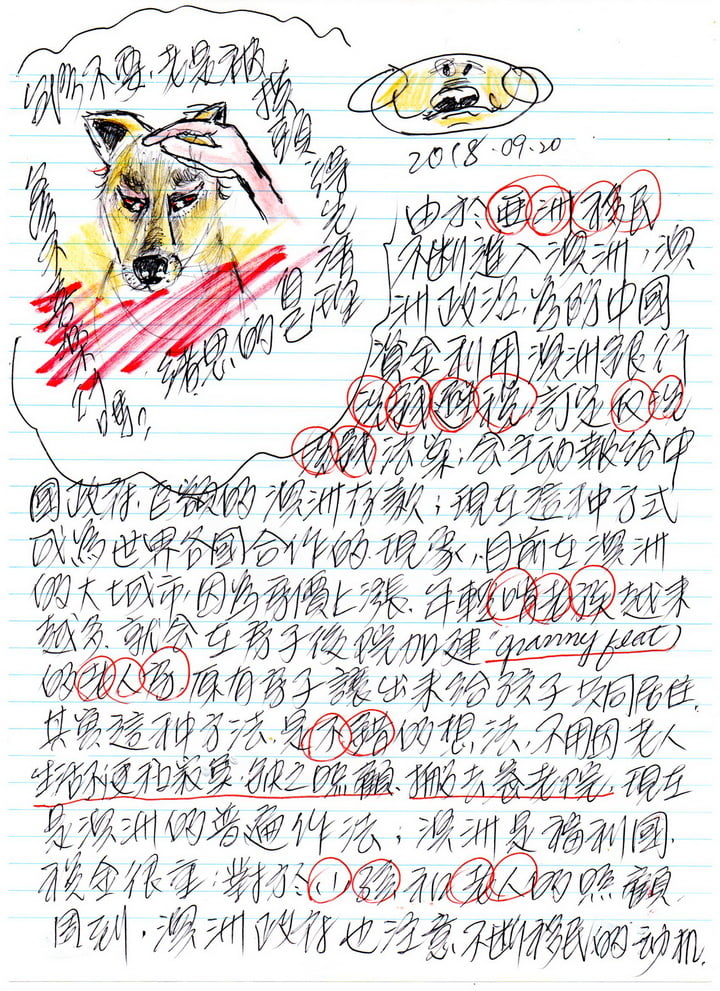 不要,老是被
摸頭
得先活
自己裡
的
吗?
2018.09.20
由於亞洲移民
不斷進入澳洲,澳
洲政府,為防中國
資金利用澳洲銀行
洗錢避稅,訂定反洗
法案;会主动報給中
國政府,巨額的澳洲存款;現在這种方式
成為世界各國合作的現象,目前在澳洲
的大城市,因為房價上漲,年輕啃老族越来
越多,就会在房子後院加建"granny feat
的老人房,原有房子讓出来給孩子共同居住,
其實這种方法,是不錯的想法,不用因老人
生活不便和寂寞,缺乏照顧,搬去養老院,現在
是澳洲的普遍作法;澳洲是福利國,
稅金很重;對於小孩和老人的照顧
周到,澳洲政府也注意不斷移民的动机.